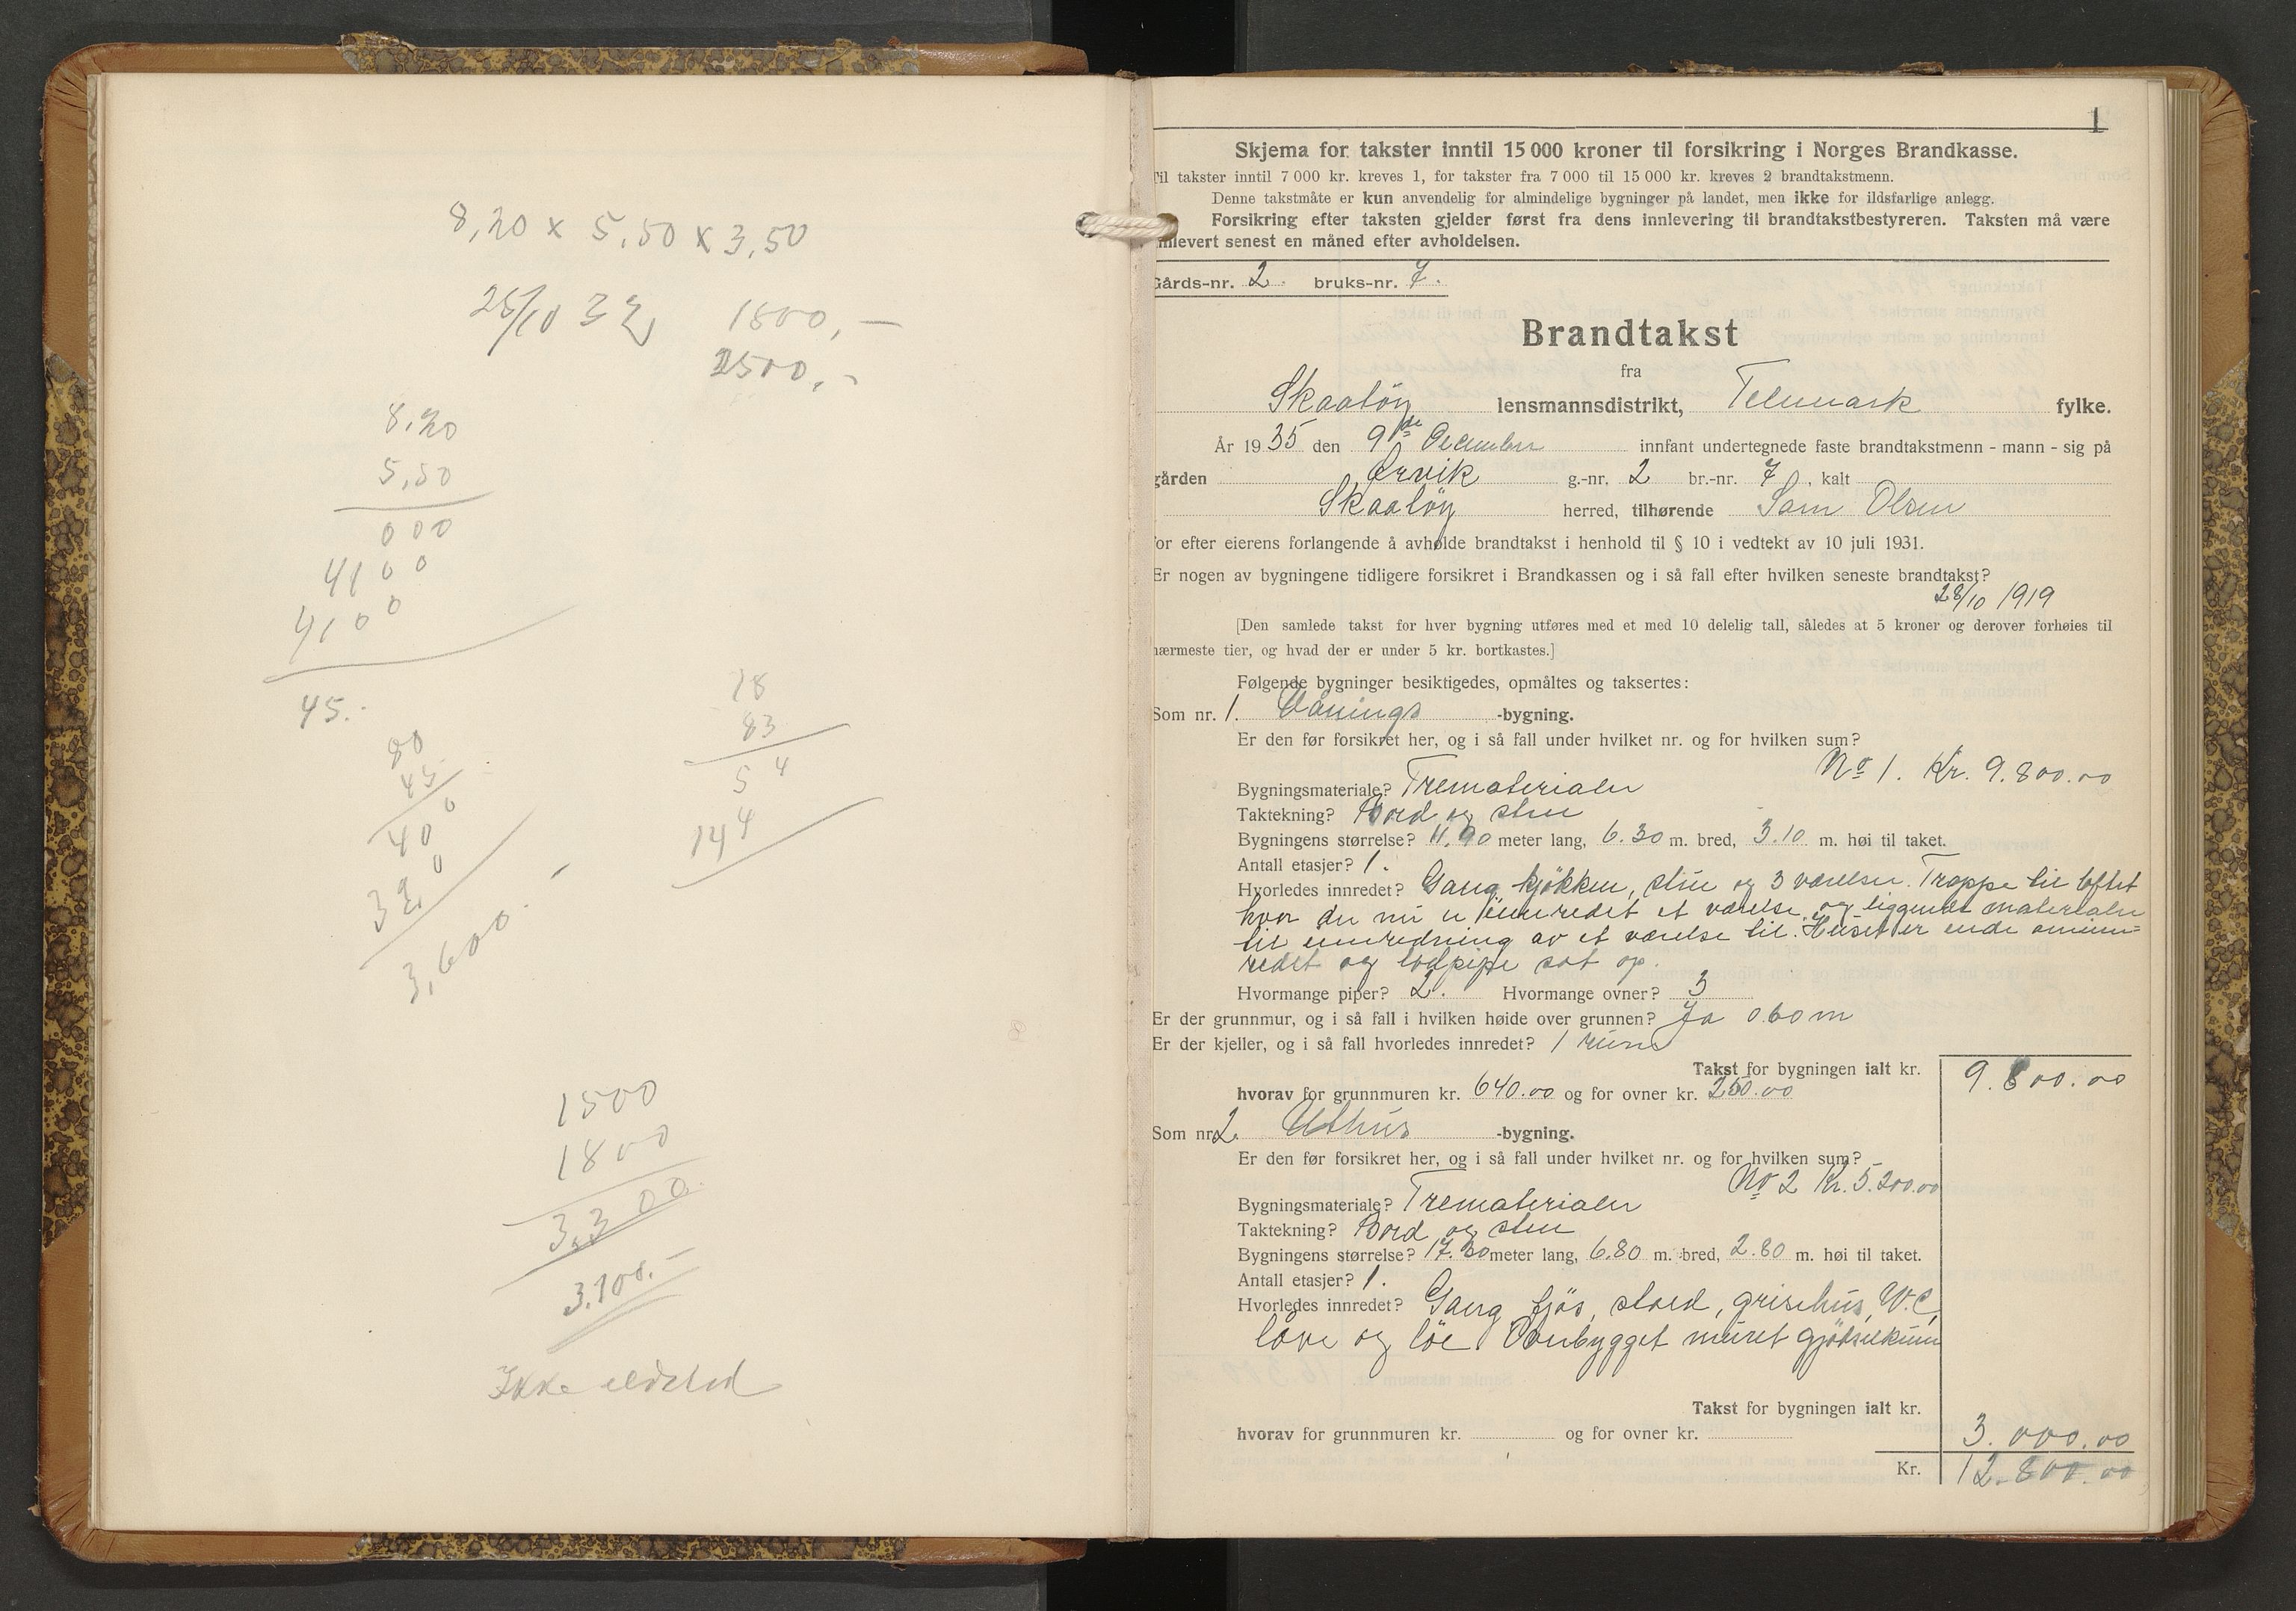 8,20 x 5,50 x 3,50
25/10 32 1800,-
2500,-
8,20
5,50
000
4100
4100
45.-
80
45
400
320
3,600.-
18
83
54
144
1500
1800
3,300
3.100.-
Ikke ildsted
1
Skjema for takster inntil 15 000 kroner til forsikring i Norges Brandkasse.
Til takster inntil 7 000 kr. kreves 1, for takster fra 7 000 til 15 000 kr. kreves 2 brandtakstmenn.
Denne takstmåte er kun anvendelig for almindelige bygninger på landet, men ikke for ildsfarlige anlegg.
Forsikring efter taksten gjelder først fra dens innlevering til brandtakstbestyreren. Taksten må være
innlevert senest en måned efter avholdelsen.
Gårds-nr. 2. bruks-nr. 7.
Brandtakst
fra
Skaatöy lensmannsdistrikt, Telemark fylke.
År 1935 den 9de December innfant undertegnede faste brandtakstmenn - mann - sig på
gården Ørvik g.-nr. 2 br.-nr. 7, kalt
Skaatöy herred, tilhørende Sam Olsen
for efter eierens forlangende å avholde brandtakst i henhold til § 10 i vedtekt av 10 juli 1931.
Er nogen av bygningene tidligere forsikret i Brandkassen og i så fall efter hvilken seneste brandtakst?
28/10 1919
[Den samlede takst for hver bygning utføres med et med 10 delelig tall, således at 5 kroner og derover forhøies til
nærmeste tier, og hvad der er under 5 kr. bortkastes.]
Følgende bygninger besiktigedes, opmåltes og taksertes:
Som nr. 1. Vånings -bygning.
Er den før forsikret her, og i så fall under hvilket nr. og for hvilken sum?
No 1. Kr. 9.800.00
Bygningsmateriale? Trematerialer
Taktekning? Bord og sten
Bygningens størrelse? 11.90 meter lang, 6.30 m. bred, 3.10 m. høi til taket.
Antall etasjer? 1.
Hvorledes innredet? Gang kjökken, stue og 3 værelser. Trappe til loftet
hvor der nu er innredet et værelse og liggende materialer
til innredning av et værelse til. Huset er ende ominn=
redet og lodpipe sat op.
Hvormange piper? 2. Hvormange ovner? 3
Er der grunnmur, og i så fall i hvilken høide over grunnen? Ja 0.60 m
Er der kjeller, og i så fall hvorledes innredet? 1 rum
Takst for bygningen ialt kr. 9.800.00
hvorav for grunnmuren kr. 640.00 og for ovner kr. 250.00
Som nr. 2. Uthus -bygning.
Er den før forsikret her, og i så fall under hvilket nr. og for hvilken sum?
No 2 Kr. 5.200.00
Bygningsmateriale? Trematerialer
Taktekning? Bord og sten
Bygningens størrelse? 17.30 meter lang, 6.80 m. bred, 2.80 m. høi til taket.
Antall etasjer? 1.
Hvorledes innredet? Gang fjös, stald, grisehus, W.C.
låve og löe Ovenbygget muret gjödselkum
Takst for bygningen ialt kr.
hvorav for grunnmuren kr. og for ovner kr. 3.000.00
Kr. 12.800.00